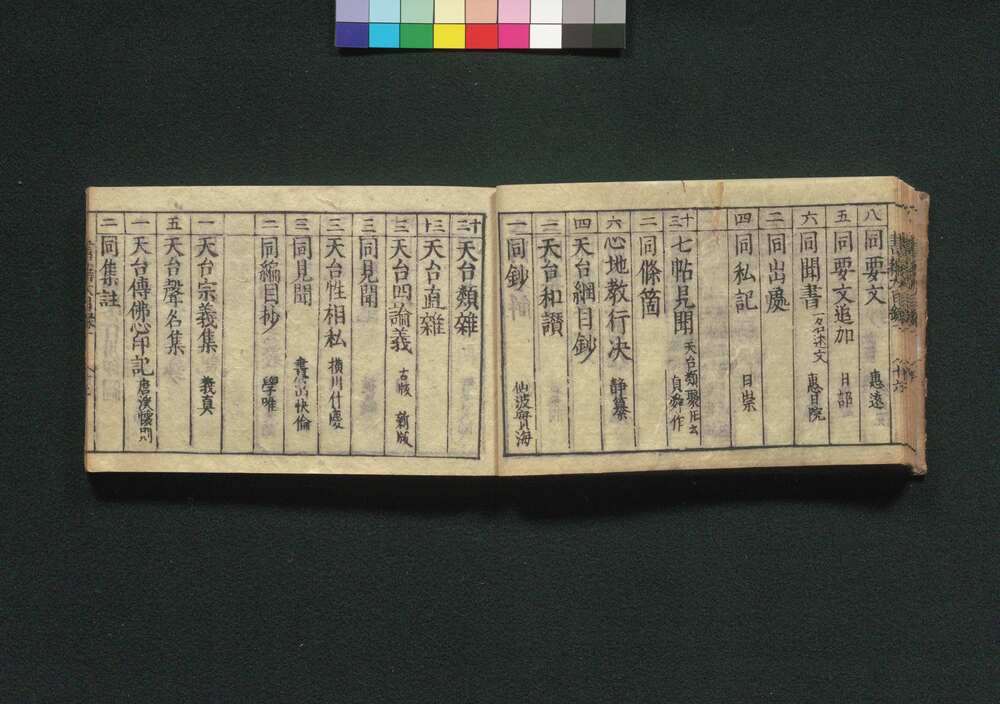 八 同要文 惠遠
五 同要文追加 日韶
六 同聞書 惠旦院
二 同出處
四 同私記 日崇
十三 七帖見聞 天台類聚 貞舜作
二 同條箇
六 心地教行决 靜纂
四 天台綱目鈔
二 天台和讃
一 同鈔 仙波實海
十二 天台類雜
十三 天台直雜
三 天台四論義 古板 新版
三 同見聞
三 天台性相私 横川什慶
三 同見聞 快倫
二 同綸目抄 學唯
一 天台宗義集 義真
五 天台聲名集
一 天台傳佛心印記 唐僕懷則
二 同集註